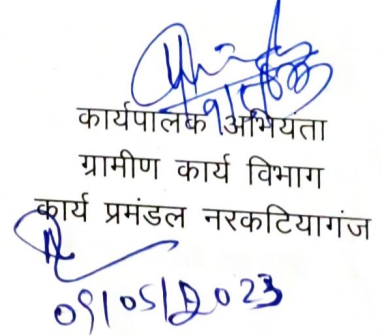 कार्यपालक अभियंता
ग्रामीण कार्य विभाग
कार्य प्रमंडल नरकटियागंज
09/05/2023